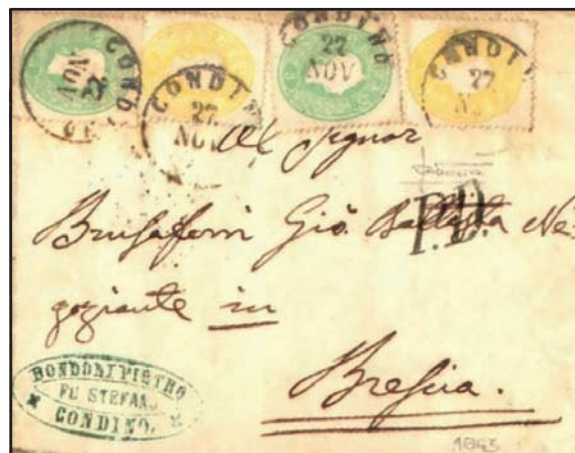 CONDINO
27
NOV
CONDINO
27
NOV
CONDINO
27
NOV
CONDINO
27
NOV
Al Signor
P.D.
Gio. Battista Ne-
goziante in
Brescia.
BONDONI PIETRO
FU STEFANO
CONDINO.